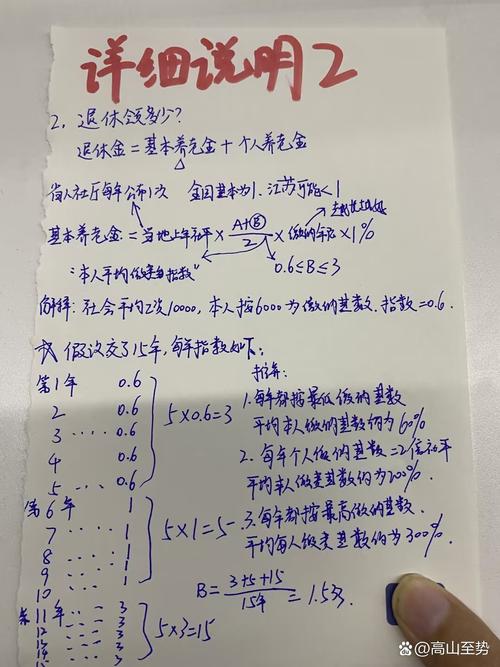 详细说明2
2、退休领多少?
退休金=基本养老金+个人养老金
省人社厅每年公布1次 全国基本为1、江苏可能<1
基本养老金:=当地上年社平×(A+B)/2×缴纳年限×1%
"本人平均缴费指数" 0.6≤B≤3
解释:社会平均工资10000,本人按6000为缴纳基数.指数=0.6.
假设交了15年,每年指数如下:
第1年 0.6
2 0.6
3 .... 0.6
4 0.6
5 ... 0.6
5×0.6=3
第6年 1
7 .... 1
8 .... 1
9 .... 1
10 .... 1
5×1=5
第11年 3
12 .... 3
13 .... 3
5×3=15
推算:
1.每年都按最低缴纳基数
平均本人缴纳基数约为60%
2.每年个人缴纳基数=2倍社平
平均本人缴费基数约为200%.
3.每年都按最高缴纳基数.
平均每人缴费基数约为300%.
B=(3+5+15)/15年=1.53.
@高山至势